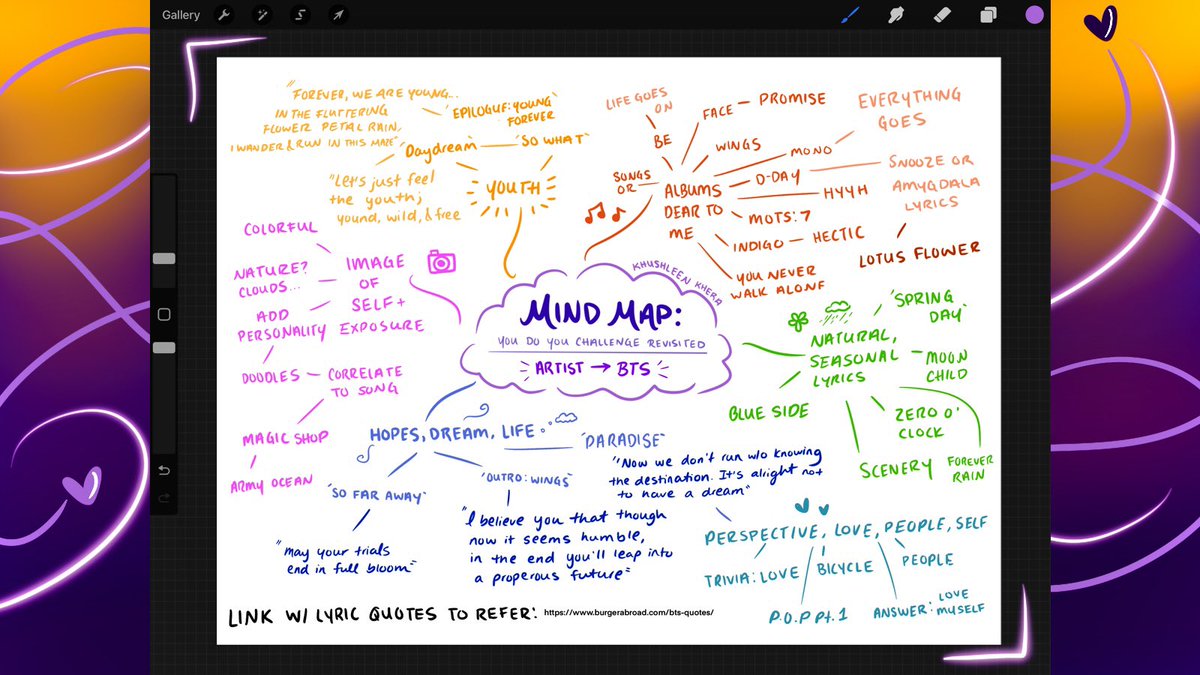 Gallery
"FOREVER, WE ARE YOUNG...
IN THE FLUTTERING
FLOWER PETAL RAIN,
I WANDER & RUN IN THIS MAZE"
'EPILOGUE: YOUNG
FOREVER'
'Daydream'
'SO WHAT'
"Let's just feel
the youth;
yound, wild, & free
YOUTH
LIFE GOES
ON
BE
FACE — PROMISE
WINGS
MONO
EVERYTHING
GOES
SONGS
OR
ALBUMS
DEAR TO
ME
D-DAY
SNOOZE OR
AMYGDALA
LYRICS
HYYH
MOTS: 7
INDIGO — HECTIC
LOTUS FLOWER
YOU NEVER
WALK ALONE
COLORFUL
NATURE?
CLOUDS...
IMAGE
OF
SELF +
EXPOSURE
ADD
PERSONALITY
DOODLES — CORRELATE
TO SONG
MAGIC SHOP
ARMY OCEAN
KHUSHLEEN KHERA
MIND MAP:
YOU DO YOU CHALLENGE REVISITED
ARTIST → BTS
'SPRING
DAY'
NATURAL,
SEASONAL
LYRICS
MOON
CHILD
BLUE SIDE
ZERO O'
CLOCK
SCENERY
FOREVER
RAIN
HOPES, DREAM, LIFE
'PARADISE'
"Now we don't run w/o knowing
the destination. It's alright not
to have a dream"
'SO FAR AWAY'
"may your trials
end in full bloom"
'OUTRO: WINGS'
"I believe you that though
now it seems humble,
in the end you'll leap into
a properous future"
PERSPECTIVE, LOVE, PEOPLE, SELF
TRIVIA: LOVE
BICYCLE
PEOPLE
P.O.P Pt. 1
ANSWER: LOVE
MYSELF
LINK W/ LYRIC QUOTES TO REFER: https://www.burgerabroad.com/bts-quotes/